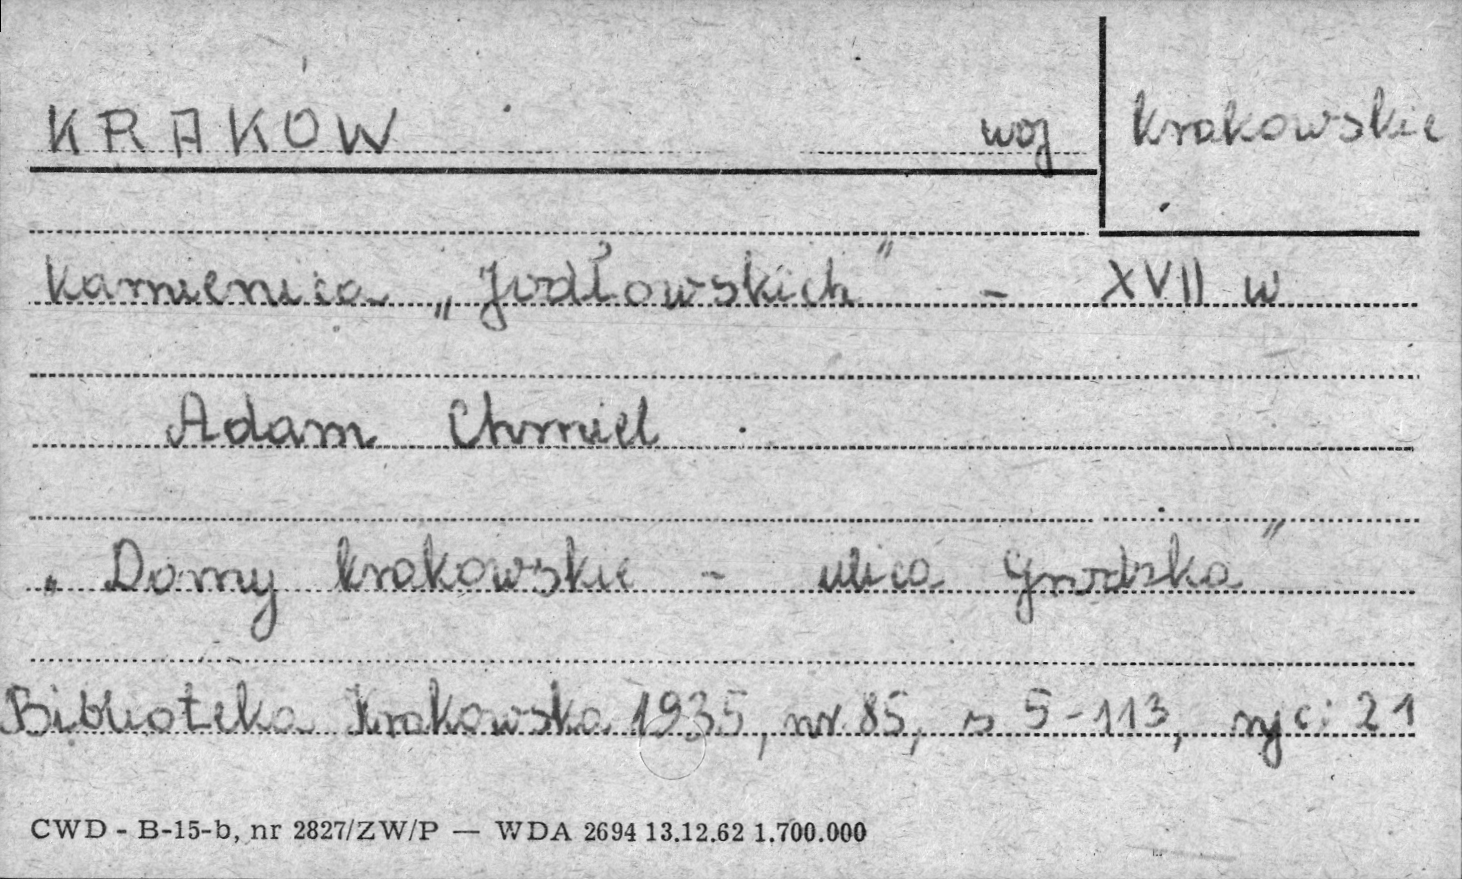 KRAKOW woj krakowskie
Kamienica „Jodłowskich" - XVII w
Adam Chmiel
„Domy krakowskie - ulica Grodzka"
Biblioteka Krakowska 1935, nr. 85, s 5-113, ryc: 21
CWD - B-15-b, nr 2827/ZW/P — WDA 2694 13.12.62 1.700.000